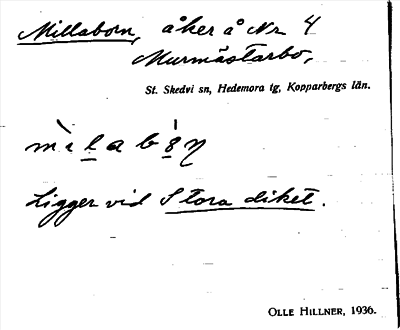 Millaborn, åker å Nr 4
Murmästarbo,
St. Skedvi sn, Hedemora tg, Kopparbergs län.
Ligger vid Stora diket.
OLLE HILLNER, 1936.